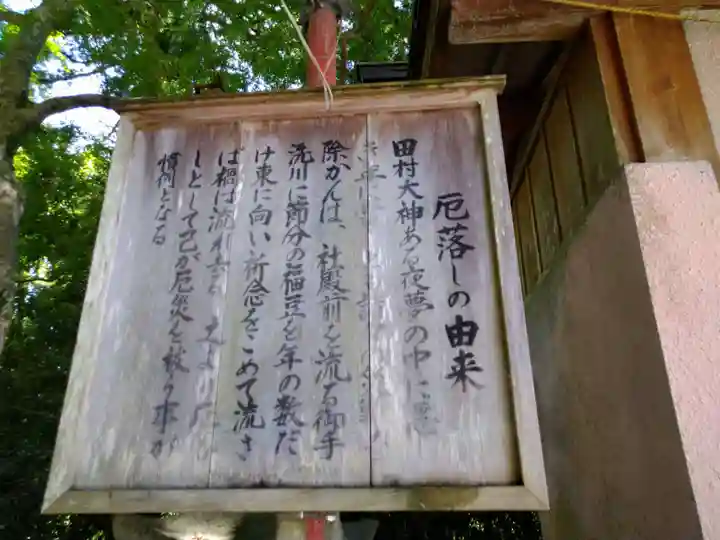 厄落しの由来
田村大神ある夜夢の中に
除かんは、社殿前を流る御手
洗川に節分の福豆を年の数だ
け東に向い祈念をこめて流さ
ば禍は流れ
しとして己が厄災を祓う事が
慣例となる